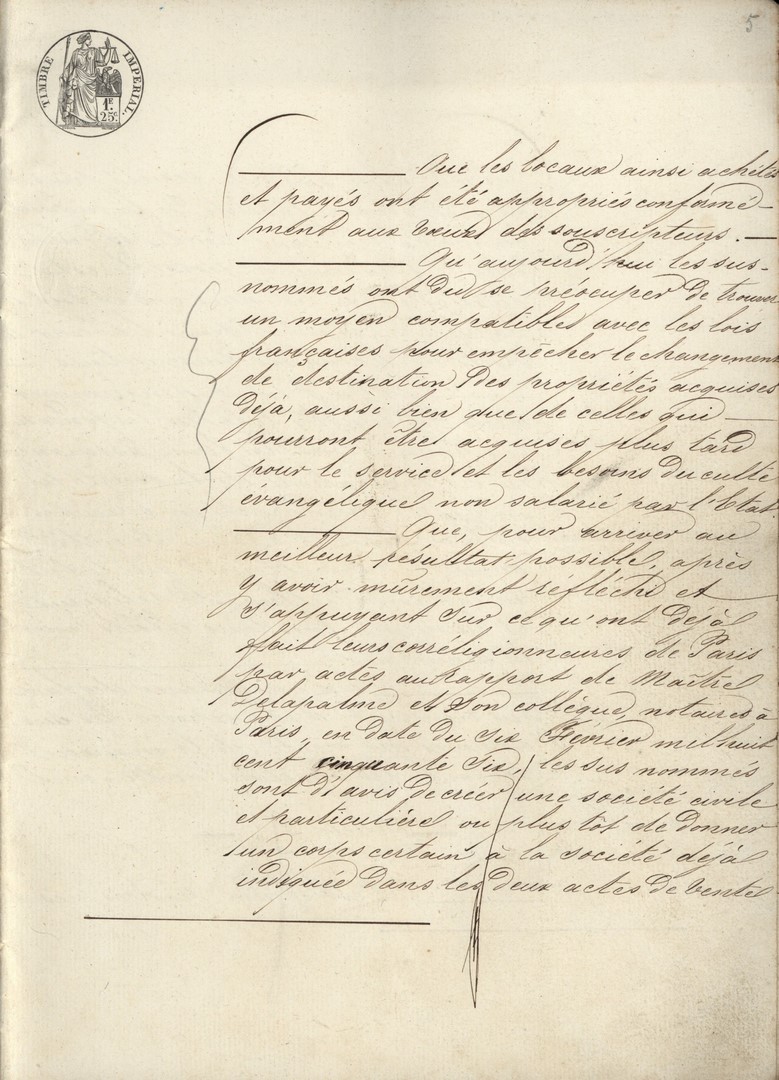 5
TIMBRE IMPERIAL
1F.
25c.
Que les locaux ainsi achetés
et payés ont été appropriés conformé-
ment aux vœux des souscripteurs.
Qu'aujourd'hui les sus-
nommés ont du se préocuper de trouver
un moyen compatibles avec les lois
françaises pour empêcher le changement
de destination des propriétés acquises
déjà, aussi bien que de celles qui
pourront être acquises plus tard
pour le service et les besoins du culte
évangélique non salarié par l'Etat.
Que, pour arriver au
meilleur résultat possible, après
y avoir mûrement réfléchi et
s'appuyant sur ce qu'ont déjà
fait leurs corréligionnaires de Paris
par actes au rapport de Maître
Delapalme et son collègue, notaires à
Paris, en date du six Février mil huit
cent cinquante six, les sus nommés
sont d'avis de créer une société civile
et particulière ou plus tôt de donner
un corps certain à la société déjà
indiquée dans les deux actes de vente